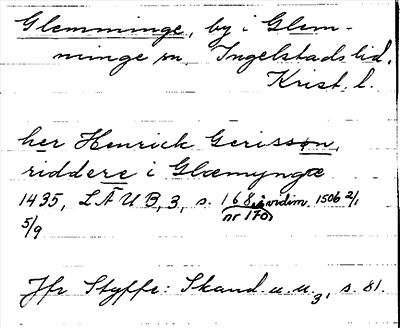 Glemminge, by i Glem-
minge sn, Ingelstads hd.
Krist. l.
her Henrick Gerisson,
riddere i Glæmyngæ
1435, LÄUB, 3, s. 168, i vidim. 1506 2/1
5/9 nr 170
Jfr Styffe: Skand. u. u. 3, s. 81.